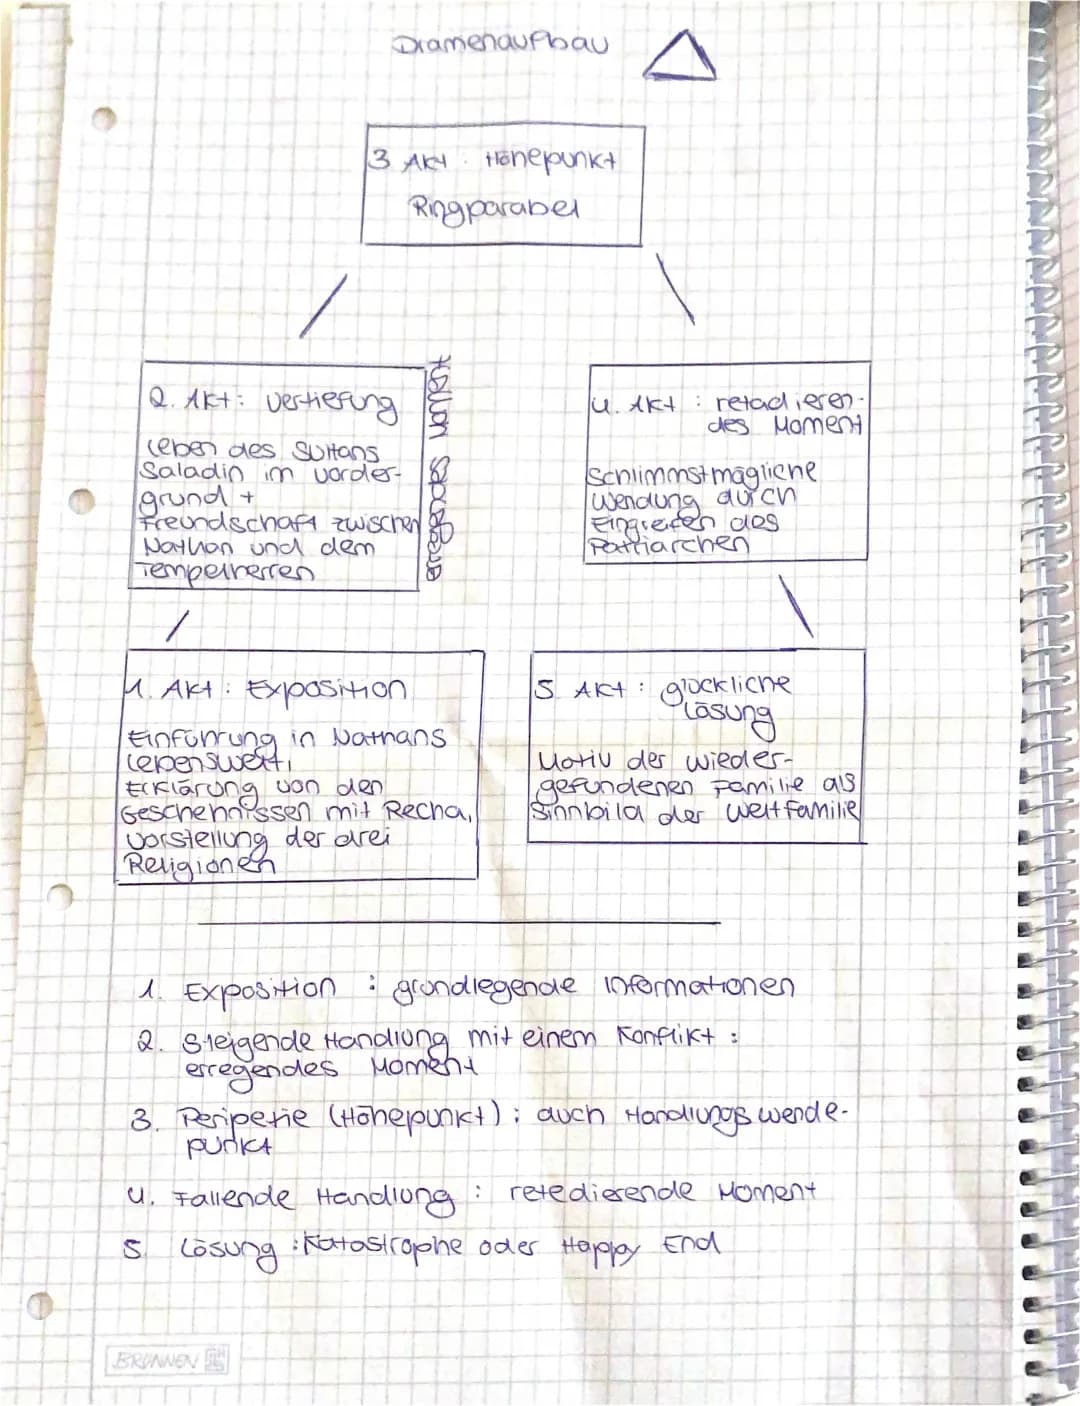 Dramenaufbau
3 Akt : Höhepunkt
Ringparabel
2. Akt: Vertiefung
Leben des Sultans
Saladin im vorder-
grund +
Freundschaft zwischen
Nathan und dem
Tempelherren
4. Akt : retadieren-
des Moment
Schlimmstmögliche
Wendung durch
Eingreifen des
Patriarchen
1. Akt : Exposition
Einführung in Nathans
Lebenswelt,
Erklärung von den
Geschehnissen mit Recha,
Vorstellung der drei
Religionen
5. Akt : glückliche
Lösung
Motiv der wieder-
gefundenen Familie als
Sinnbild der Weltfamilie
1. Exposition : grundlegende Informationen
2. Steigende Handlung mit einem Konflikt :
erregendes Moment
3. Peripetie (Höhepunkt) ; auch Handlungswende-
punkt
4. Fallende Handlung : retedierende Moment
5. Lösung : Katastrophe oder Happy End
BRUNNEN